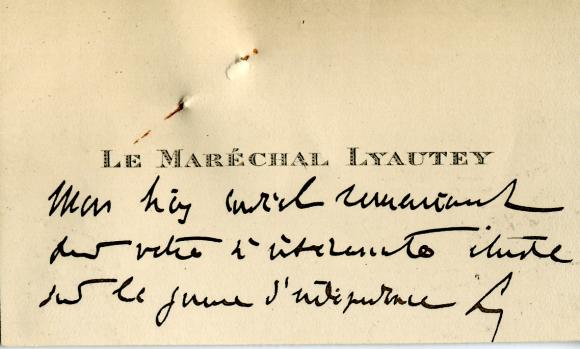 LE MARÉCHAL LYAUTEY
Mon très cordial remerciement
pour votre si intéressante étude
sur la guerre d'indépendance Ly